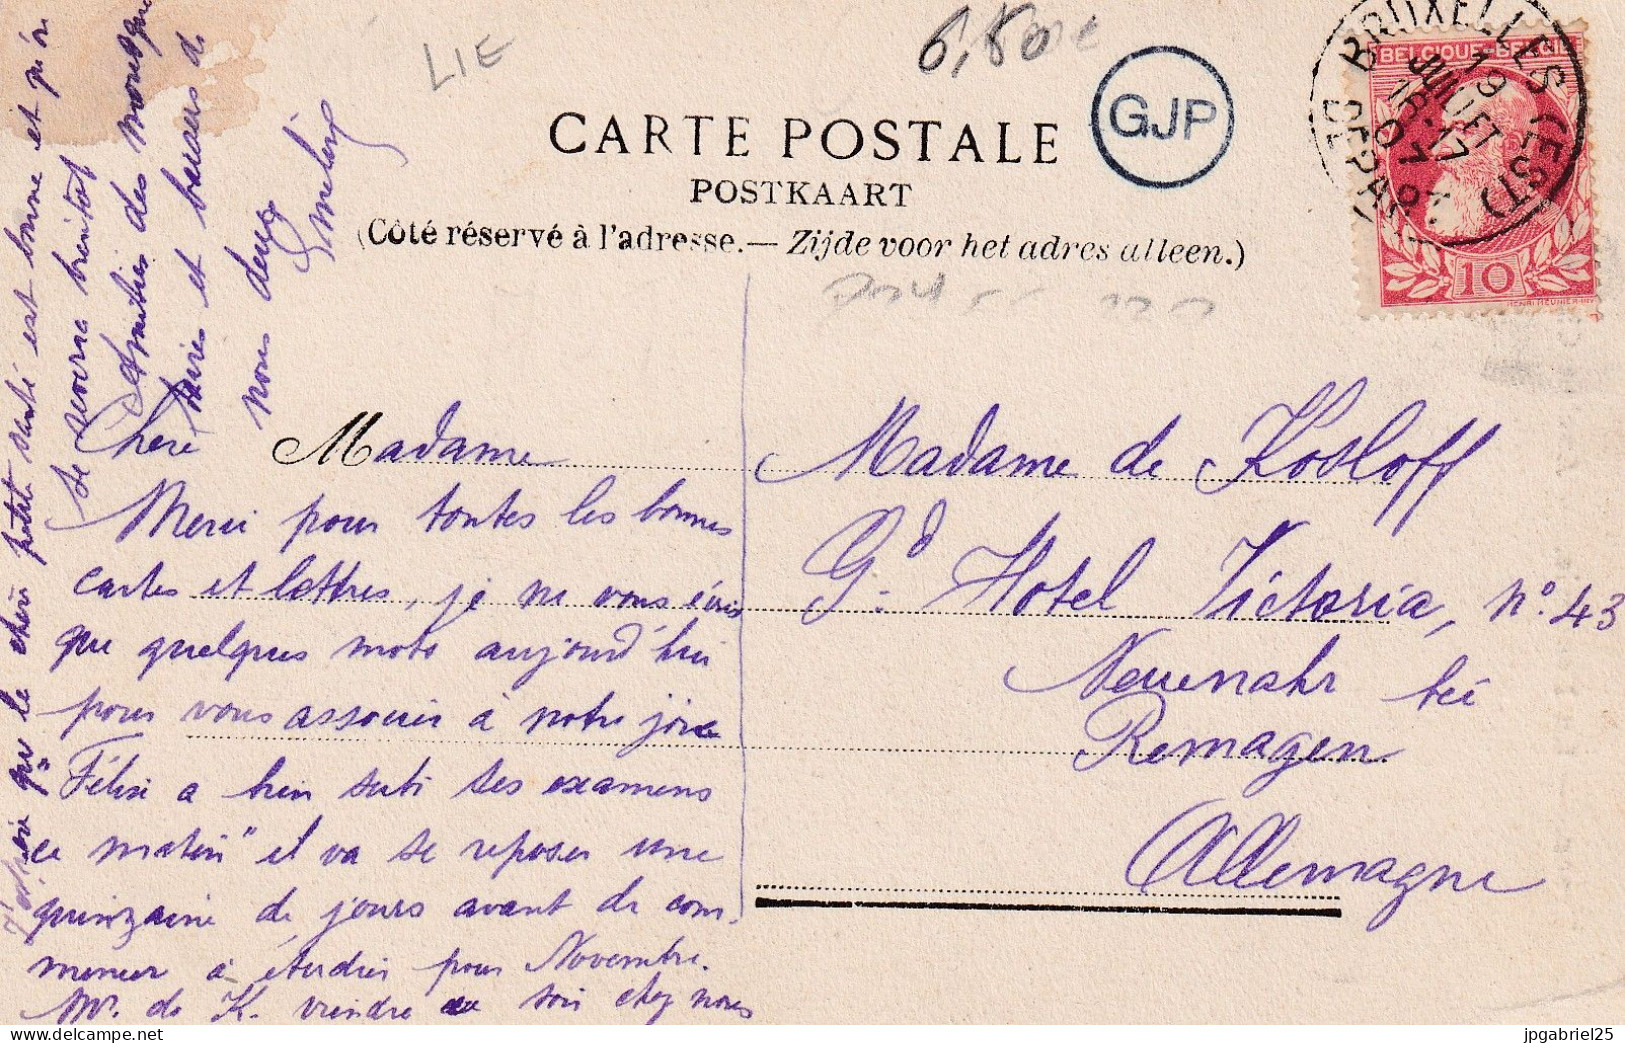 LIE
6,50
CARTE POSTALE
GJP
POSTKAART
(Côté réservé à l'adresse. — Zijde voor het adres alleen.)
BRUXELLES (EST)
19
JUILLET
16-17
07
DEPART
BELGIQUE-BELGIË
10
Chère Madame
Merci pour toutes les bonnes
cartes et lettres, je ne vous écris
que quelques mots aujourd'hui
pour vous associer à notre joie
Félix a bien subi ses examens
ce matin" et va se reposer une
quinzaine de jours avant de com
mencer à étudier pour Novembre.
Mr. de K. viendra ce soir chez nous
qu" le chère petite santé est bonne et qu'on
se reverra bientôt
Amitiés des
et baisers de
nous deux
Madame de Kosloff
Gd. Hotel Victoria, no. 43
Neuenahr bei
Remagen
Allemagne
jpgabriel25